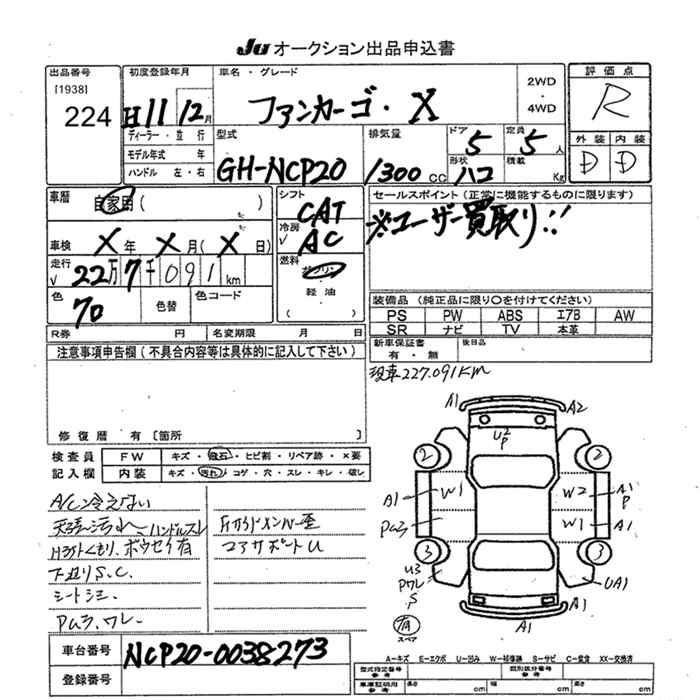 JU オークション出品申込書
出品番号
[1938]
224
初度登録年月
H11 12月
車名・グレード
ファンカーゴ・X
2WD
・
4WD
評価点
R
ディーラー・並行
モデル年式 年
ハンドル 左・右
型式
GH-NCP20
排気量
1300 CC
ドア
5
定員
5 人
形状
ハコ
積載
Kg
外装 内装
D D
車暦
自家用 ( )
車検 X 年 X 月 ( X 日)
走行
√ 22万7千091km
色
70
色替
色コード
シフト
CAT
冷房
√ AC
燃料
ガソリン
・
軽油
セールスポイント (正常に機能するものに限ります)
※ユーザー買取り!!
装備品 (純正品に限り○を付けてください)
PS PW ABS エアB AW
SR ナビ TV 本革
R券 円 名変期限 月 日
新車保証書
有・無
後日品
注意事項申告欄 (不具合内容等は具体的に記入して下さい)
現車227.091KM
修復暦 有 [箇所
検査員
記入欄
FW キズ・飛石・ヒビ割・リペア跡・X要
内装 キズ・汚れ・コゲ・穴・スレ・キレ・破し
A/C冷えない
天張汚れ ハンドルスレ
Hライトくもり、ボウセイ有
下廻りS.C.
シートシミ
Fガイドメンバー歪
コアサポートU
A1 A2
U2
P
2 2
A1 W1 W2 A1
P
W1 A1
3 3
U3
S
UA1
A1
有
スペア
A1
A-キズ E-エクボ U-凹み W-補修跡 S-サビ C-腐食 XX-交換済
車台番号 NCP20-0038273
登録番号
型式指定番号
参考
類別区分番号
参考
車庫証明用
参考
長さ cm 幅 cm 高さ cm